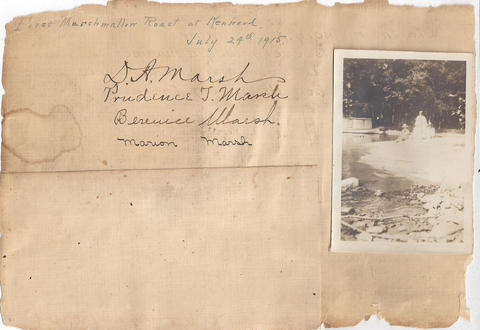 First Marshmallow Roast at Kenwood
July 24th 1915.
D. A. Marsh
Prudence T. Marsh
Berenice Marsh.
Marion Marsh